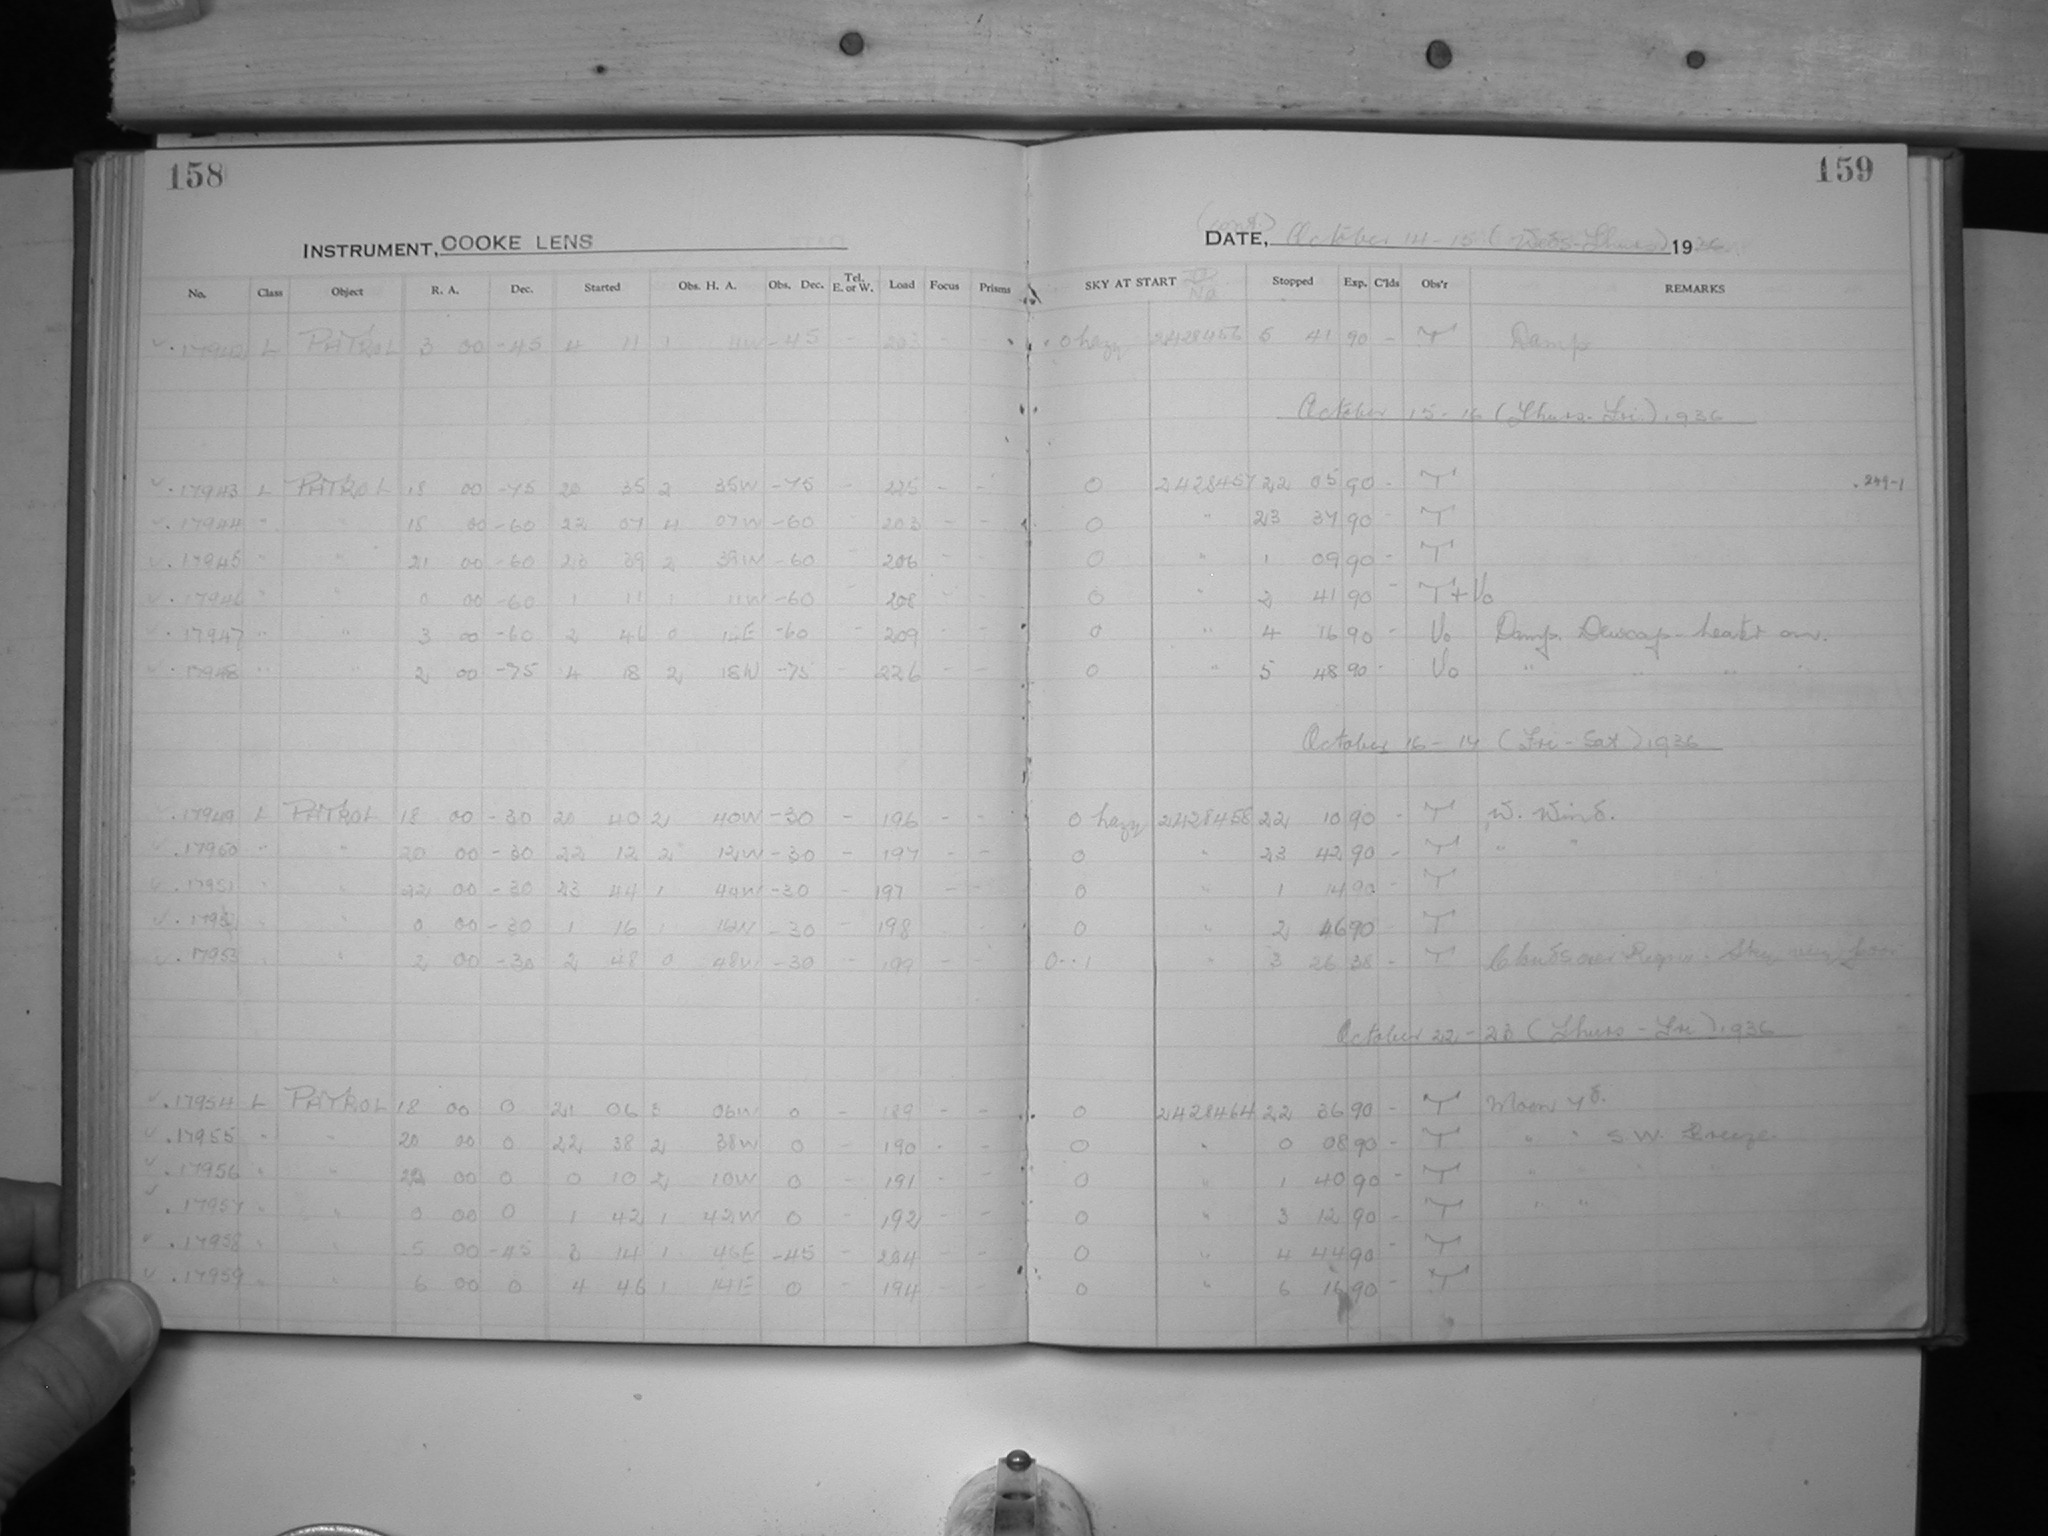 158
159
INSTRUMENT, COOKE LENS
(cont.)
DATE, October 14-15 (Weds-Thurs) 1936
No. Class Object R. A. Dec. Started Obs. H. A. Obs. Dec. Tel. E. or W. Load Focus Prisms SKY AT START JD No Stopped Exp. C'lds Obs'r REMARKS
17942 L PATROL 3 00 -45 4 11 1 11W -45 - 203 - - 0 hazy 2428456 5 41 90 - T Damp
October 15-16 (Thurs-Fri) 1936
17943 L PATROL 18 00 -75 20 35 2 35W -75 - 225 - - 0 2428457 22 05 90 - T .249-1
17944 " " 18 00 -60 22 07 4 07W -60 - 203 - - 0 " 23 37 90 - T
17945 " " 21 00 -60 23 39 2 39W -60 - 206 - - 0 " 1 09 90 - T
17946 " " 0 00 -60 1 11 1 11W -60 - 208 - - 0 " 2 41 90 - T+Vo
17947 " " 3 00 -60 2 46 0 14E -60 - 209 - - 0 " 4 16 90 - Vo Damp. Dewcap-heater on.
17948 " " 2 00 -75 4 18 2 18W -75 - 226 - - 0 " 5 48 90 - Vo " " " "
October 16-17 (Fri-Sat) 1936
17949 L PATROL 18 00 -30 20 40 2 40W -30 - 196 - - 0 hazy 2428458 22 10 90 - T W. Wind.
17950 " " 20 00 -30 22 12 2 12W -30 - 197 - - 0 " 23 42 90 - T " "
17951 " " 22 00 -30 23 44 1 44W -30 - 197 - - 0 " 1 14 90 - T
17952 " " 0 00 -30 1 16 1 16W -30 - 198 - - 0 " 2 46 90 - T
17953 " " 2 00 -30 2 48 0 48W -30 - 199 - - 0--1 " 3 26 38 - T Clouds over Region. Sky very poor
October 22-23 (Thurs-Fri) 1936
17954 L PATROL 18 00 0 21 06 3 06W 0 - 189 - - 0 2428464 22 36 90 - T Moon 7d.
17955 " " 20 00 0 22 38 2 38W 0 - 190 - - 0 " 0 08 90 - T " " S.W. Breeze
17956 " " 22 00 0 0 10 2 10W 0 - 191 - - 0 " 1 40 90 - T " "
17957 " " 0 00 0 1 42 1 42W 0 - 192 - - 0 " 3 12 90 - T " "
17958 " " 5 00 -45 3 14 1 46E -45 - 204 - - 0 " 4 44 90 - T
17959 " " 6 00 0 4 46 1 14E 0 - 194 - - 0 " 6 16 90 - T